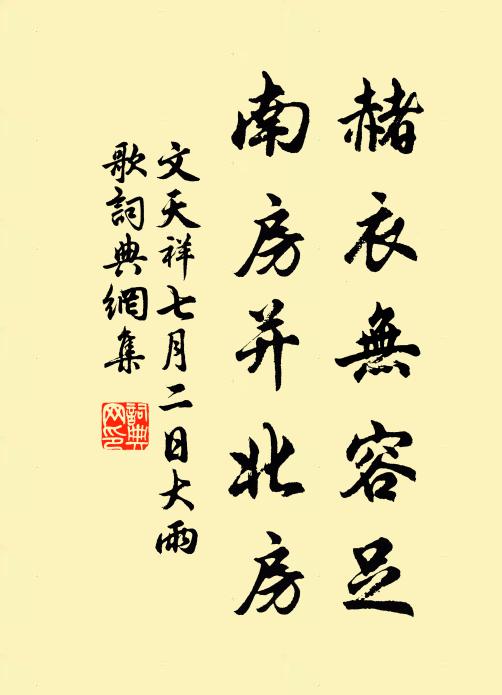 赭衣無容足
南房并北房
文天祥七月二日大雨
歌詞典網集
詞典
网印